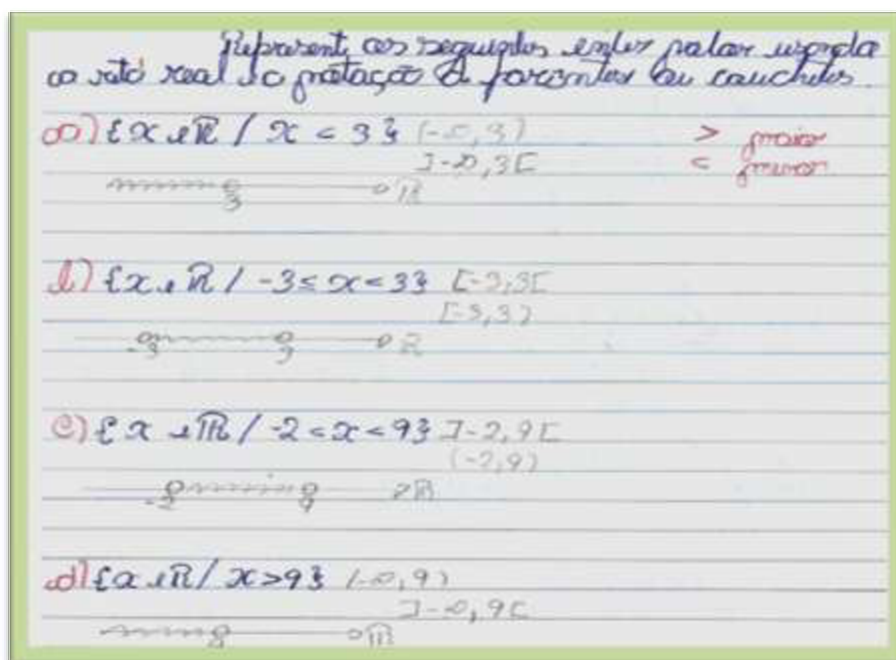 Represent os seguintes inter valor usando
a reta real e a notação de parenteses ou couchetes.
a) {x ∈ ℝ / x < 3} (-∞,3)
> maior
]-∞,3[
< menor
3 ℝ
b) {x ∈ ℝ / -3 ≤ x < 3} [-3,3[
[-3,3)
-3 3 ℝ
c) {x ∈ ℝ / -2 < x < 9} ]-2,9[
(-2,9)
-2 9 ℝ
d) {x ∈ ℝ / x > 9} (-∞,9)
]-∞,9[
ℝ